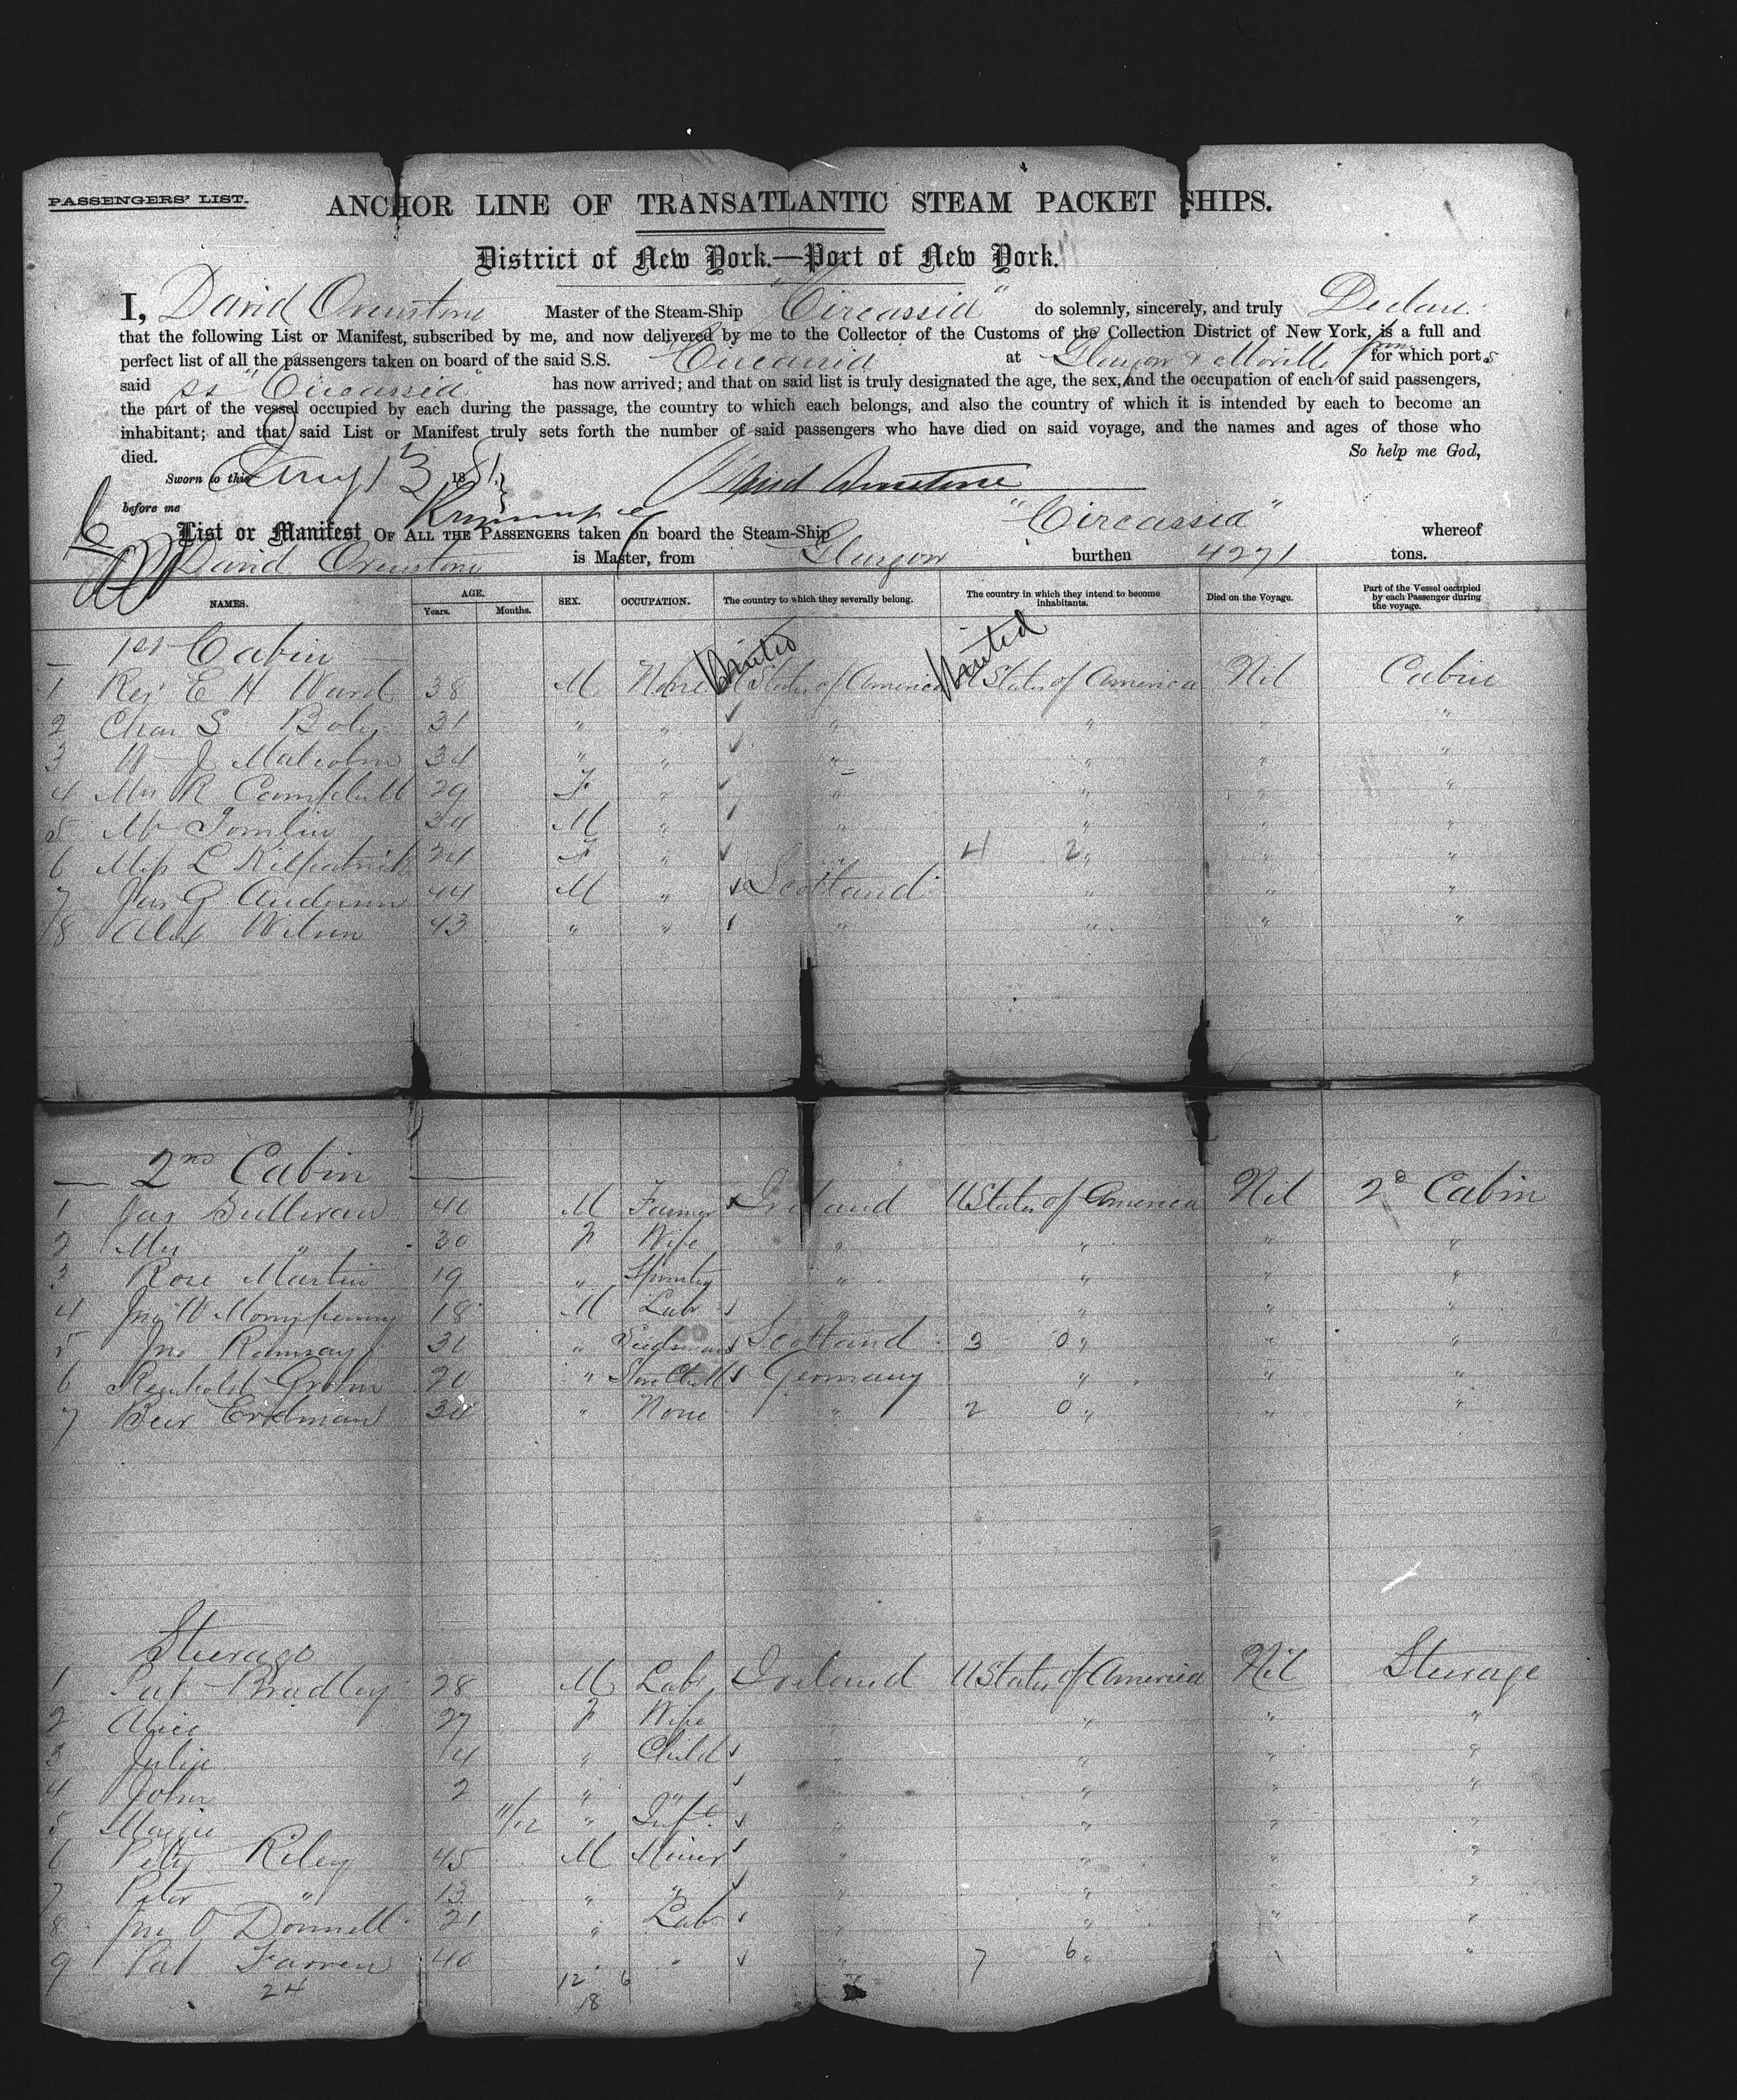 PASSENGERS' LIST.
ANCHOR LINE OF TRANSATLANTIC STEAM PACKET SHIPS.
District of New York.—Port of New York.
I, David Ormstone Master of the Steam-Ship "Circassia" do solemnly, sincerely, and truly Declare
that the following List or Manifest, subscribed by me, and now delivered by me to the Collector of the Customs of the Collection District of New York, is a full and
perfect list of all the passengers taken on board of the said S.S. Circassia at Glasgow & Moville from for which ports
said SS "Circassia" has now arrived; and that on said list is truly designated the age, the sex, and the occupation of each of said passengers,
the part of the vessel occupied by each during the passage, the country to which each belongs, and also the country of which it is intended by each to become an
inhabitant; and that said List or Manifest truly sets forth the number of said passengers who have died on said voyage, and the names and ages of those who
died. So help me God,
Sworn to this Aug 13 1881 David Ormstone
before me
List or Manifest OF ALL THE PASSENGERS taken on board the Steam-Ship "Circassia" whereof
David Ormstone is Master, from Glasgow burthen 4271 tons.
NAMES. AGE. Years. Months. SEX. OCCUPATION. The country to which they severally belong. The country in which they intend to become inhabitants. Died on the Voyage. Part of the Vessel occupied by each Passenger during the voyage.
— 1st Cabin —
1 Rev E H Ward 38 M None United States of America United States of America Nil Cabin
2 Chas S 31 " " " " " "
3 W J Malcolm 34 " " " " " "
4 Mrs R Campbell 29 F " " " " "
5 Mr Tomlin 34 M " " " " "
6 Miss L Kilpatrick 24 F " " 4 2 " " "
7 Jas G Anderson 44 M " Scotland " " "
8 Alex Wilson 43 " " " " " "
— 2nd Cabin —
1 Jas Sullivan 40 M Farmer Ireland U States of America Nil 2d Cabin
2 Mrs " 30 F Wife " " " "
3 Rose Martin 19 " Spinster " " " "
4 Jno W Monypenny 18 M Lab " " " "
5 Jno Ramsay 31 " Seedsman Scotland 3 0 " " "
6 Reinhold 20 " Germany " " "
7 Erdman 34 " None " 2 0 " " "
Steerage
1 Pat Bradley 28 M Lab Ireland U States of America Nil Steerage
2 Alice 27 F Wife " " " "
3 Julia 4 " Child " " " "
4 John 2 " " " " " "
5 Maggie 11/12 " Inft " " " "
6 Peter Riley 45 M Miner " " " "
7 Peter " 13 " " " " " "
8 Jno O Donnell 21 " Lab " " " "
9 Pat Farren 40 " " " 7 6 " " "
24 12 6
18